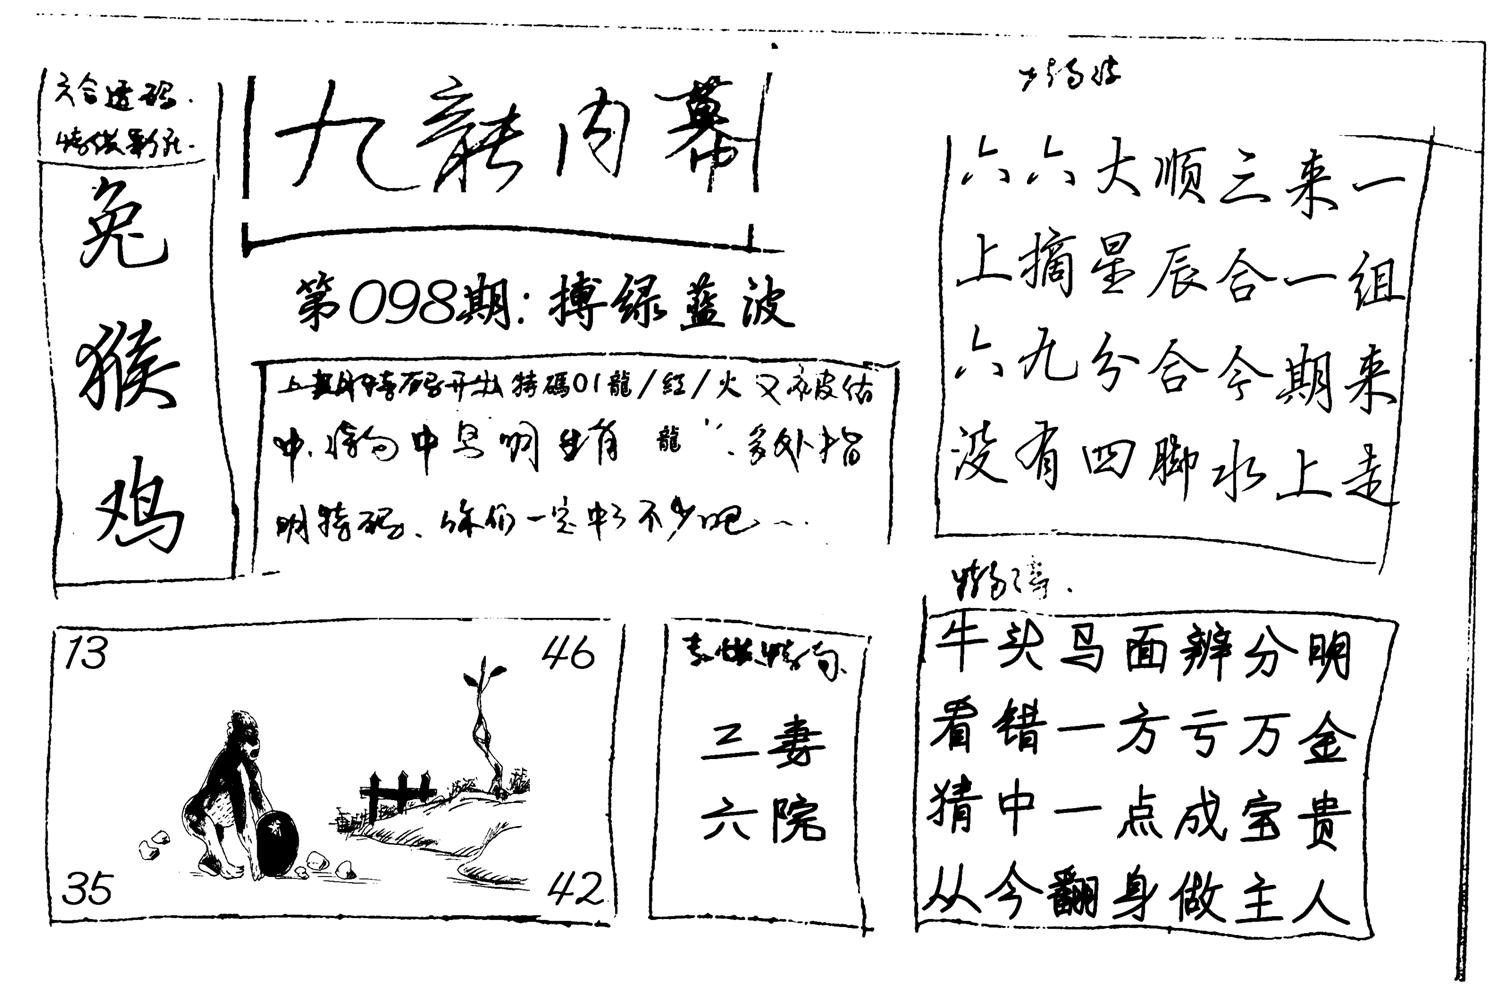 六合透码.
兔
猴
鸡
九龍内幕
第098期:搏绿蓝波
上期特码开出特碼01龍/红/火又被估
中.特肖中已明生肖龍".多处指
明特码、你们一定中了不少吧...
六六大顺三来一
上摘星辰合一组
六九分合今期来
没有四脚水上走
13
46
35
42
三妻
六院
牛头马面辨分明
看错一方亏万金
猜中一点成宝贵
从今翻身做主人